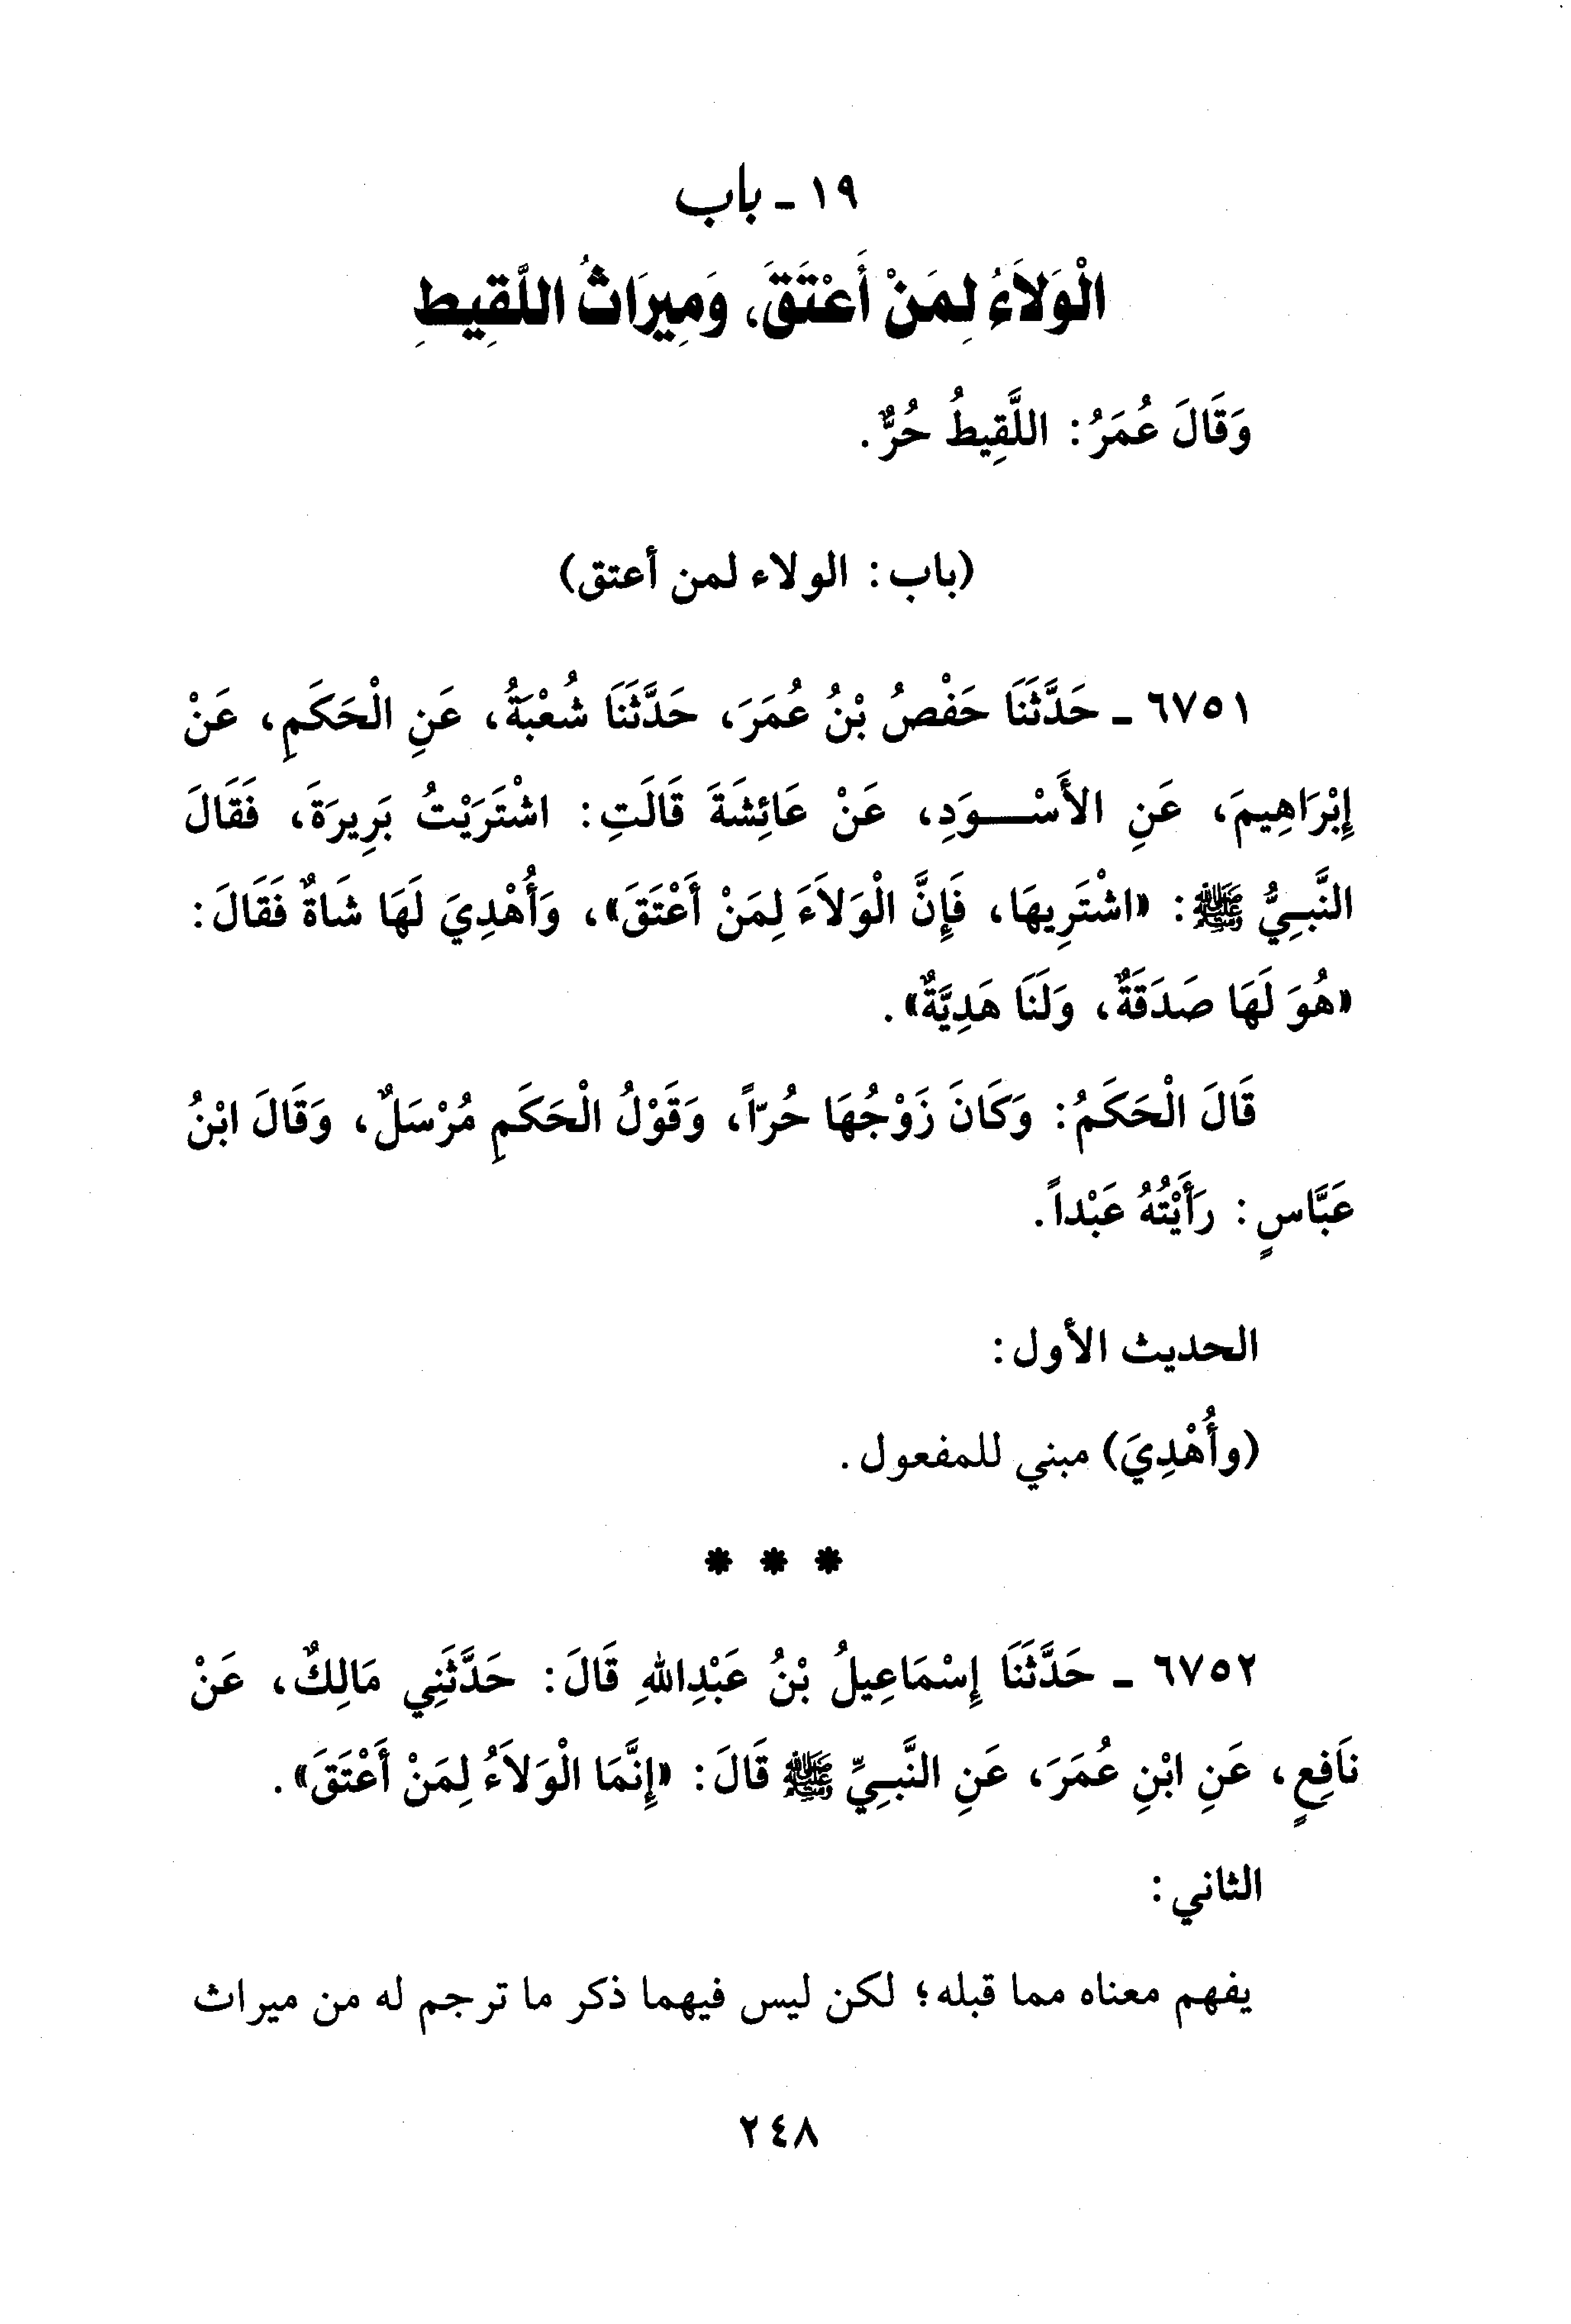 ١٩ - باب
الْوَلاَءُ لِمَنْ أَعْتَقَ، وَمِيرَاثُ اللَّقِيطِ
وَقَالَ عُمَرُ: اللَّقِيطُ حُرٌّ.
(باب: الولاء لمن أعتق)
٦٧٥١ - حَدَّثَنَا حَفْصُ بْنُ عُمَرَ، حَدَّثَنَا شُعْبَةُ، عَنِ الْحَكَمِ، عَنْ
إِبْرَاهِيمَ، عَنِ الأَسْوَدِ، عَنْ عَائِشَةَ قَالَتِ: اشْتَرَيْتُ بَرِيرَةَ، فَقَالَ
النَّبِيُّ ﷺ: «اشْتَرِيهَا، فَإِنَّ الْوَلاَءَ لِمَنْ أَعْتَقَ»، وَأُهْدِيَ لَهَا شَاةٌ فَقَالَ:
«هُوَ لَهَا صَدَقَةٌ، وَلَنَا هَدِيَّةٌ».
قَالَ الْحَكَمُ: وَكَانَ زَوْجُهَا حُرّاً، وَقَوْلُ الْحَكَمِ مُرْسَلٌ، وَقَالَ ابْنُ
عَبَّاسٍ: رَأَيْتُهُ عَبْداً.
الحديث الأول:
(وأُهْدِيَ) مبني للمفعول.
* * *
٦٧٥٢ - حَدَّثَنَا إِسْمَاعِيلُ بْنُ عَبْدِاللهِ قَالَ: حَدَّثَنِي مَالِكٌ، عَنْ
نَافِعٍ، عَنِ ابْنِ عُمَرَ، عَنِ النَّبِيِّ ﷺ قَالَ: «إِنَّمَا الْوَلاَءُ لِمَنْ أَعْتَقَ».
الثاني:
يفهم معناه مما قبله؛ لكن ليس فيهما ذكر ما ترجم له من ميراث
٢٤٨